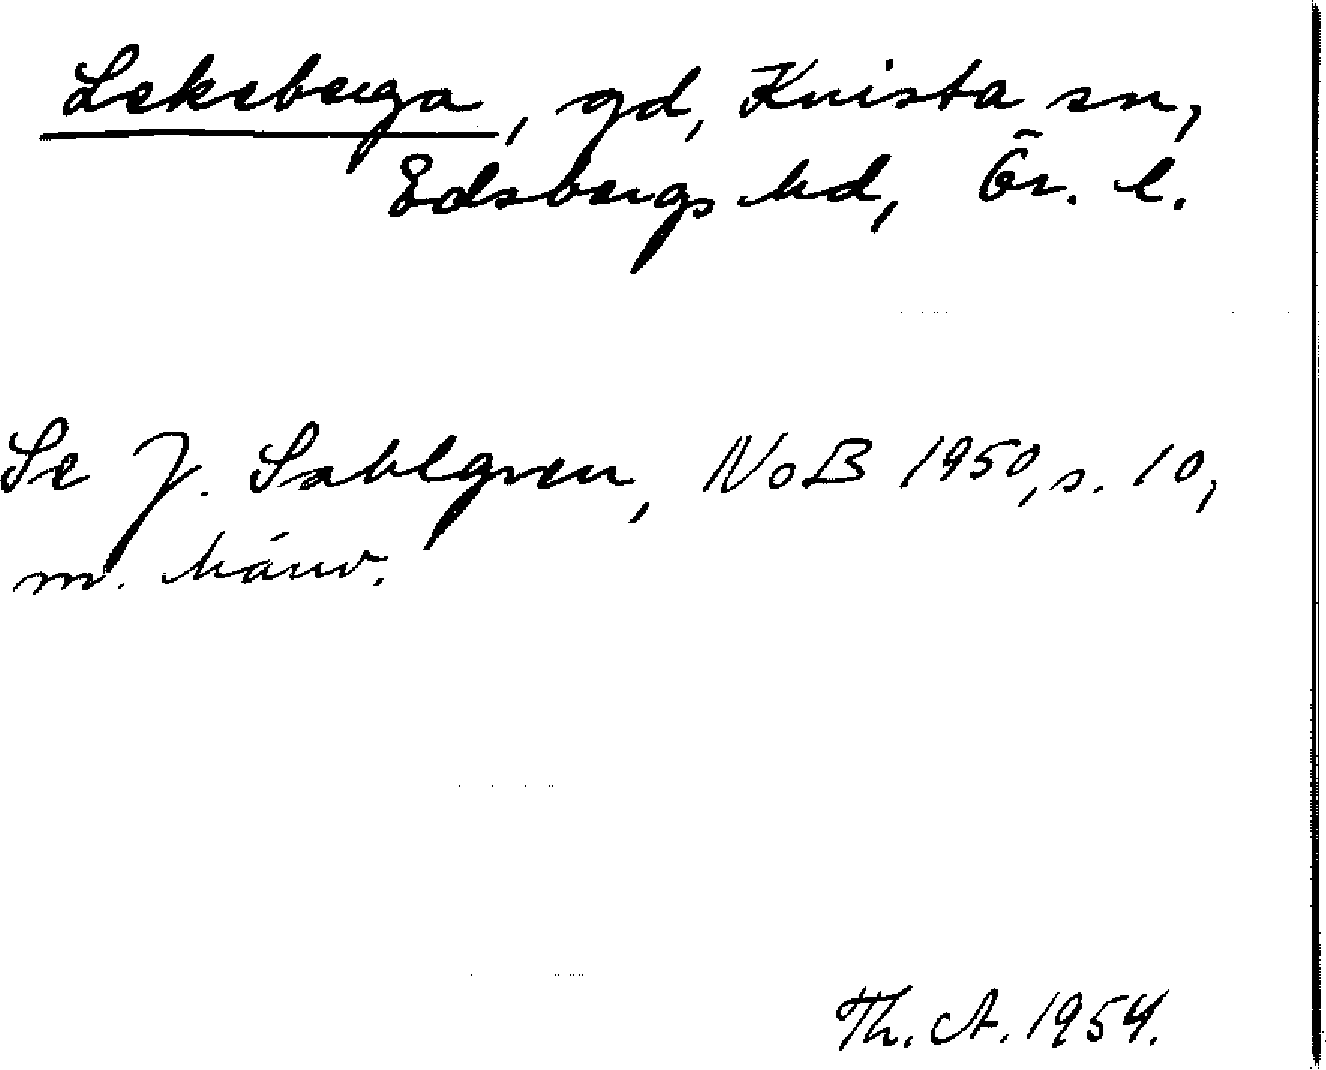 Lekeberga, gd, Knista sn,
Edsbergs hd, Ör. l.
Se J. Sahlgren, NoB 1950, s. 10,
m. hänv.
Th. A. 1954.